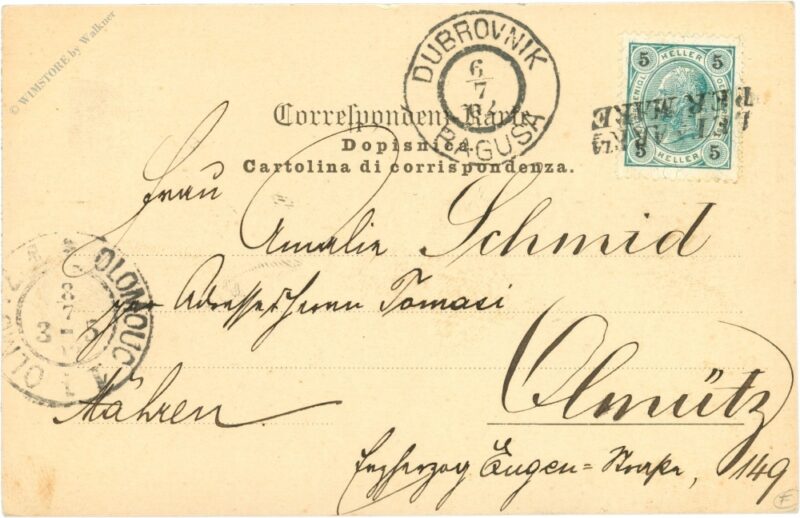 © WIMSTORE by Walkner
DUBROVNIK
6
7
RAGUSA
5 HELLER 5
5 HELLER 5
PER MARE
Correspondenz-Karte.
Dopisnica.
Cartolina di corrispondenza.
Frau
Amalie Schmid
per Adresse Herrn Tomasi
Olmütz
Mähren
Erzherzog Eugen=Straße, 149
OLOMOUC
3 5